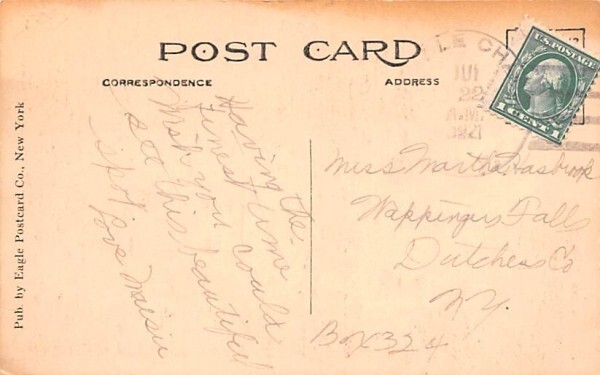 POST CARD
CORRESPONDENCE
ADDRESS
Pub. by Eagle Postcard Co., New York
Having the
finest time
Wish you could
see this beautiful
spot
Love Maisie
U.S. POSTAGE
1 CENT 1
LE CH
22
Miss Martha Hasbrook
Wappingers Falls
Dutchess Co
N.Y.
Box 324